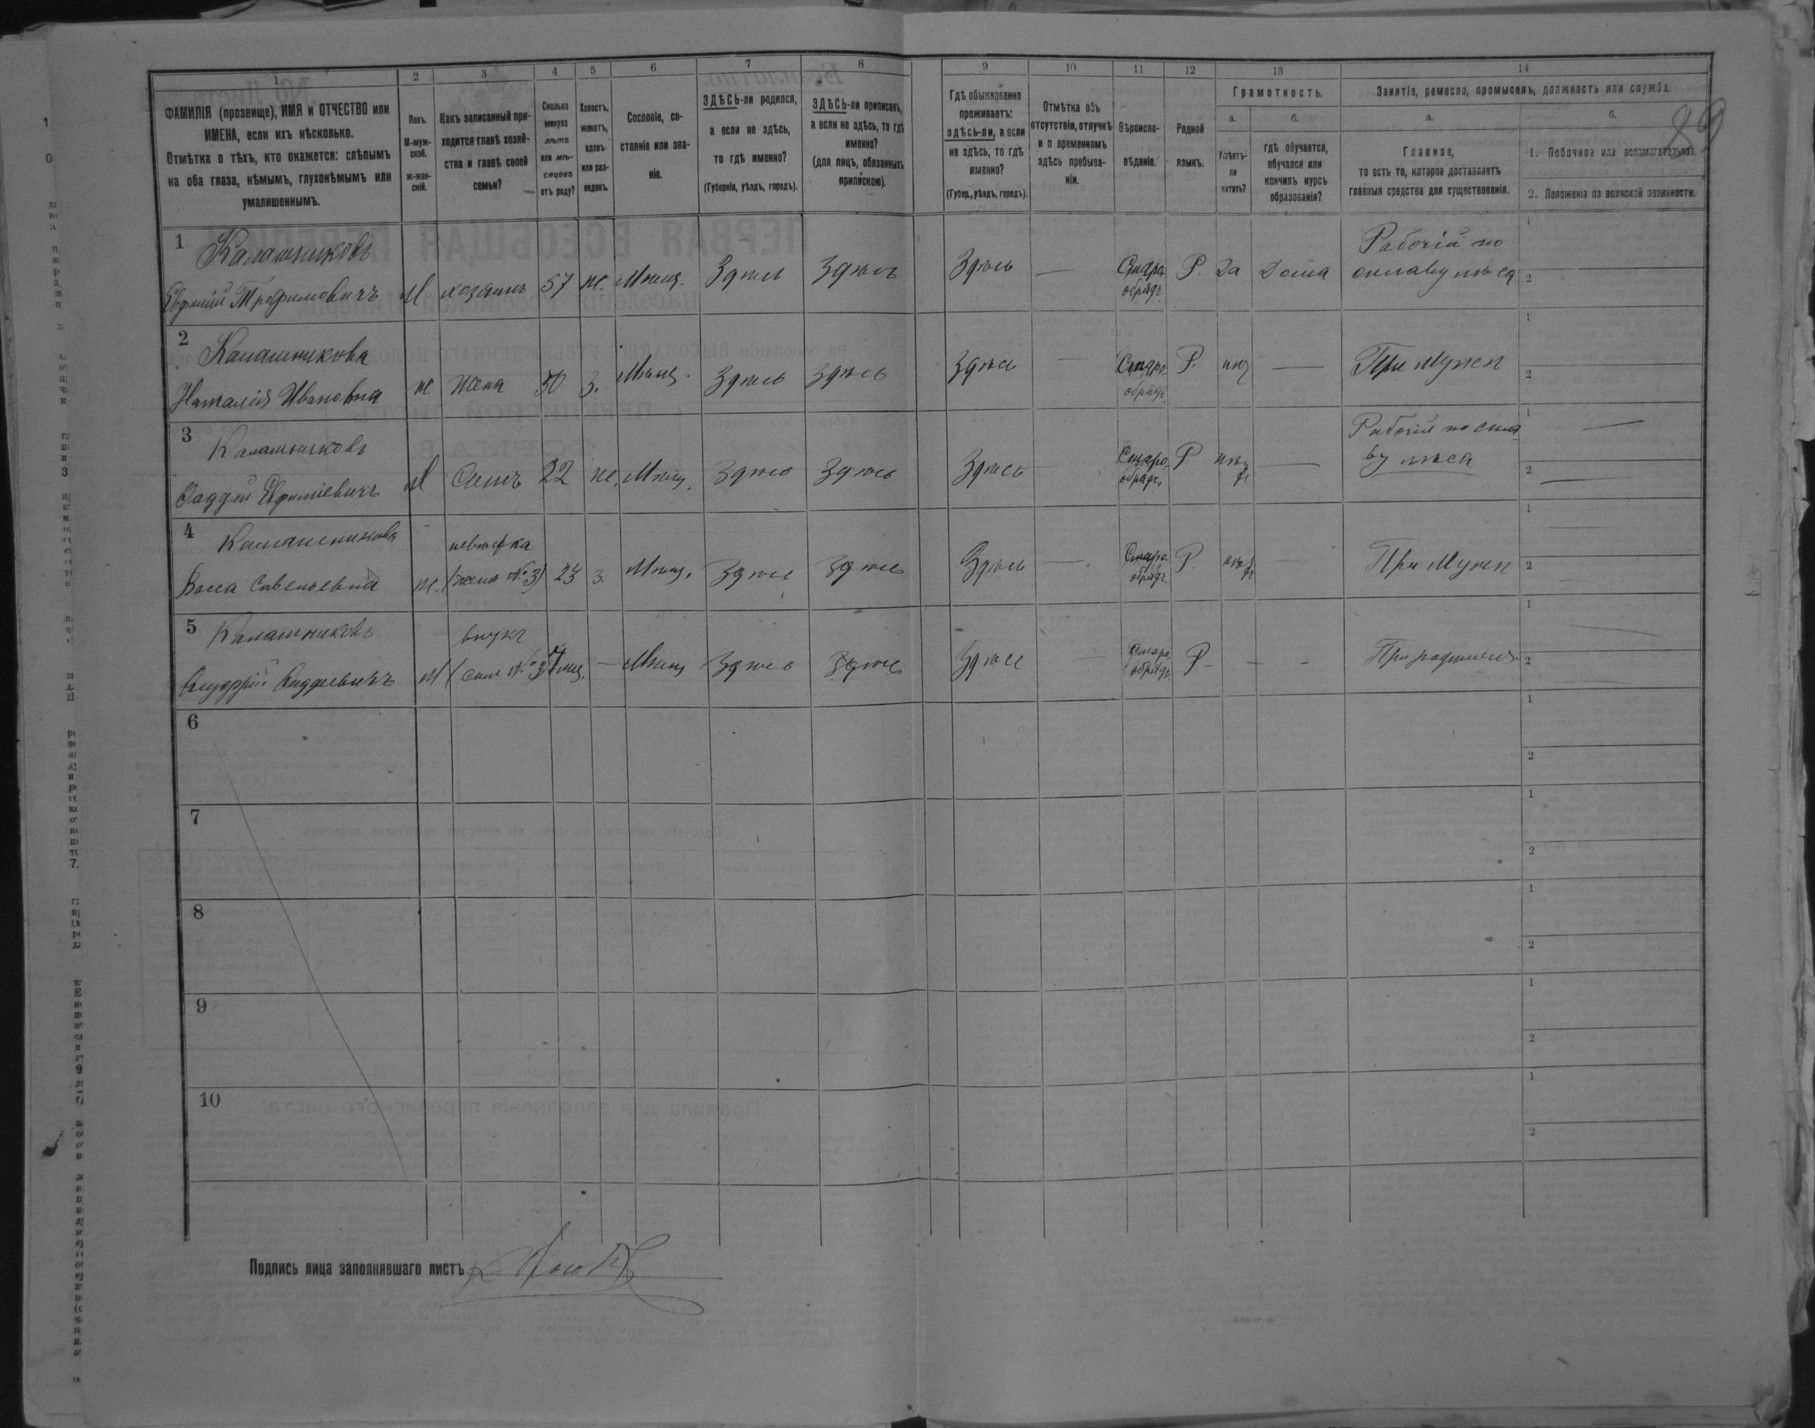 1 2 3 4 5 6 7 8 9 10 11 12 13 14
ФАМИЛІЯ (прозвище), ИМЯ и ОТЧЕСТВО или
ИМЕНА, если ихъ нѣсколько.
Отмѣтка о тѣхъ, кто окажется: слѣпымъ
на оба глаза, нѣмымъ, глухонѣмымъ или
умалишеннымъ.
Полъ.
М-муж-
ской.
ж-жен-
скій.
Какъ записанный при-
ходится главѣ хозяй-
ства и главѣ своей
семьи?
Сколько
минуло
лѣтъ
или мѣ-
сяцевъ
отъ роду?
Холостъ,
женатъ,
вдовъ
или раз-
веденъ.
Сословіе, со-
стояніе или зва-
ніе.
ЗДѢСЬ-ли родился,
а если не здѣсь,
то гдѣ именно?
(Губернія, уѣздъ, городъ).
ЗДѢСЬ-ли приписанъ,
а если не здѣсь, то гдѣ
именно?
(для лицъ, обязанныхъ
припискою).
Гдѣ обыкновенно
проживаетъ:
здѣсь-ли, а если
не здѣсь, то гдѣ
именно?
(Губер., уѣздъ, городъ).
Отмѣтка объ
отсутствіи, отлучкѣ
и о временномъ
здѣсь пребыва-
ніи.
Вѣроиспо-
вѣданіе.
Родной
языкъ.
Грамотность.
а.
Умѣетъ-
ли
читать?
б.
гдѣ обучается,
обучался или
кончилъ курсъ
образованія?
Занятіе, ремесло, промыселъ, должность или служба.
а.
Главное,
то есть то, которое доставляетъ
главныя средства для существованія.
б.
1. Побочное или вспомогательное.
2. Положеніе по воинской повинности.
89
1 Калашниковъ
Евфимій Трофимовичъ М хозяинъ 57 ж. Мѣщ. Здѣсь Здѣсь Здѣсь — Старо
обрядъ Р. Да Дома Рабочій по
сплаву лѣса
2 Калашникова
Наталія Ивановна ж жена 50 з. Мѣщ. Здѣсь Здѣсь Здѣсь — Старо
обряд. Р. нѣтъ — При мужѣ
3 Калашниковъ
Фаддей Евфиміевичъ М Сынъ 22 ж. Мѣщ. Здѣсь Здѣсь Здѣсь — Старо
обряд. Р нѣтъ — Рабочій по спла
ву лѣса
4 Калашникова
Савельевна ж. невѣстка
(жена № 3) 23 з. Мѣщ. Здѣсь Здѣсь Здѣсь — Старо
обряд. Р. нѣтъ — При мужѣ
5 Калашниковъ
Фаддеевичъ М внукъ
(сынъ № 3) 7 мѣс. — Мѣщ Здѣсь Здѣсь Здѣсь — Старо
обряд. Р. - - При родителяхъ
6
7
8
9
10
Подпись лица заполнявшаго листъ